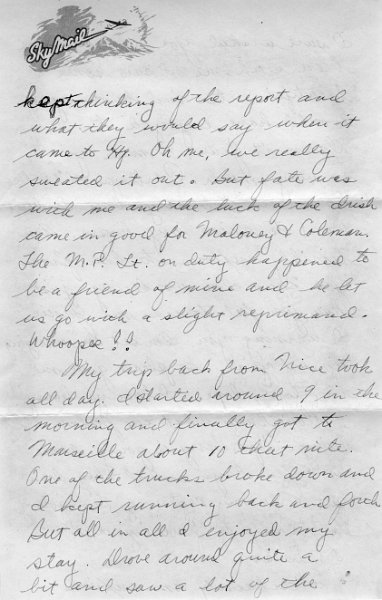 Sky Mail
kept thinking of the report and
what they would say when it
came to Hq. Oh me, we really
sweated it out. But fate was
with me and the luck of the Irish
came in good for Maloney & Coleman.
The M.P. Lt. on duty happened to
be a friend of mine and he let
us go with a slight reprimand.
Whoopee!!
My trip back from Nice took
all day. I started around 9 in the
morning and finally got to
Marseille about 10 that nite.
One of the trucks broke down and
I kept running back and forth
But all in all I enjoyed my
stay. Drove around quite a
bit and saw a lot of the